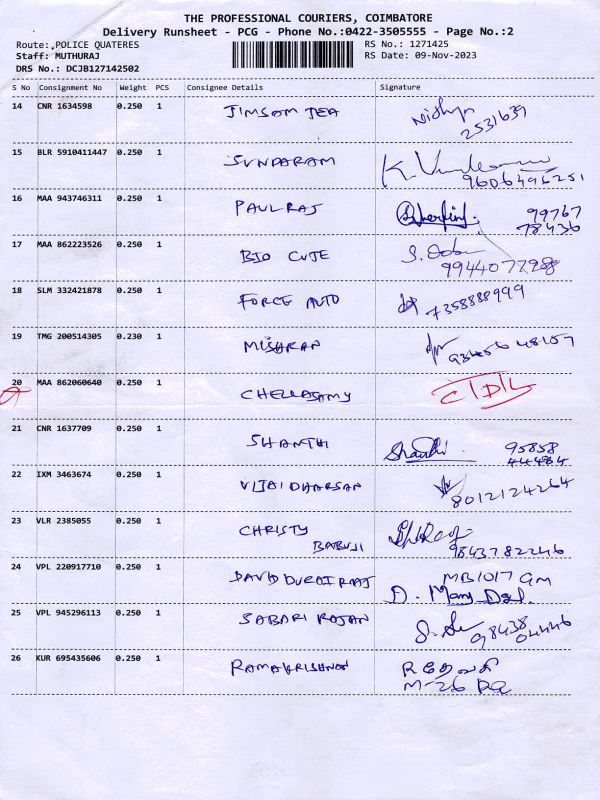 THE PROFESSIONAL COURIERS, COIMBATORE
Delivery Runsheet - PCG - Phone No.:0422-3505555 - Page No.:2
Route:,POLICE QUATERES RS No.: 1271425
Staff: MUTHURAJ RS Date: 09-Nov-2023
DRS No.: DCJB127142502
S No Consignment No Weight PCS Consignee Details Signature
14 CNR 1634598 0.250 1 JIMSOM TEA
2531639
15 BLR 5910411447 0.250 1 SUNDARAM K.
9606496251
16 MAA 943746311 0.250 1 PAULRAJ 99767
78436
17 MAA 862223526 0.250 1 BIO CUTE S.
9944077288
18 SLM 332421878 0.250 1 FORCE AUTO 7358888999
19 TMG 200514305 0.230 1 MISHRAN
20 MAA 862060640 0.250 1 CHELLASAMY C/D/L
21 CNR 1637709 0.250 1 SHANTHI Shanthi 95858
44484
22 IXM 3463674 0.250 1 VIJAI DHARSAN 8012124264
23 VLR 2385055 0.250 1 CHRISTY
BABUJI 9843782246
24 VPL 220917710 0.250 1 DAVID DURAI RAJ MB1017 GM
D. Mary
25 VPL 945296113 0.250 1 SABARI RAJAN 98438
04446
26 KUR 695435606 0.250 1 RAMAKRISHNAN R தேவகி
M-26 PQ